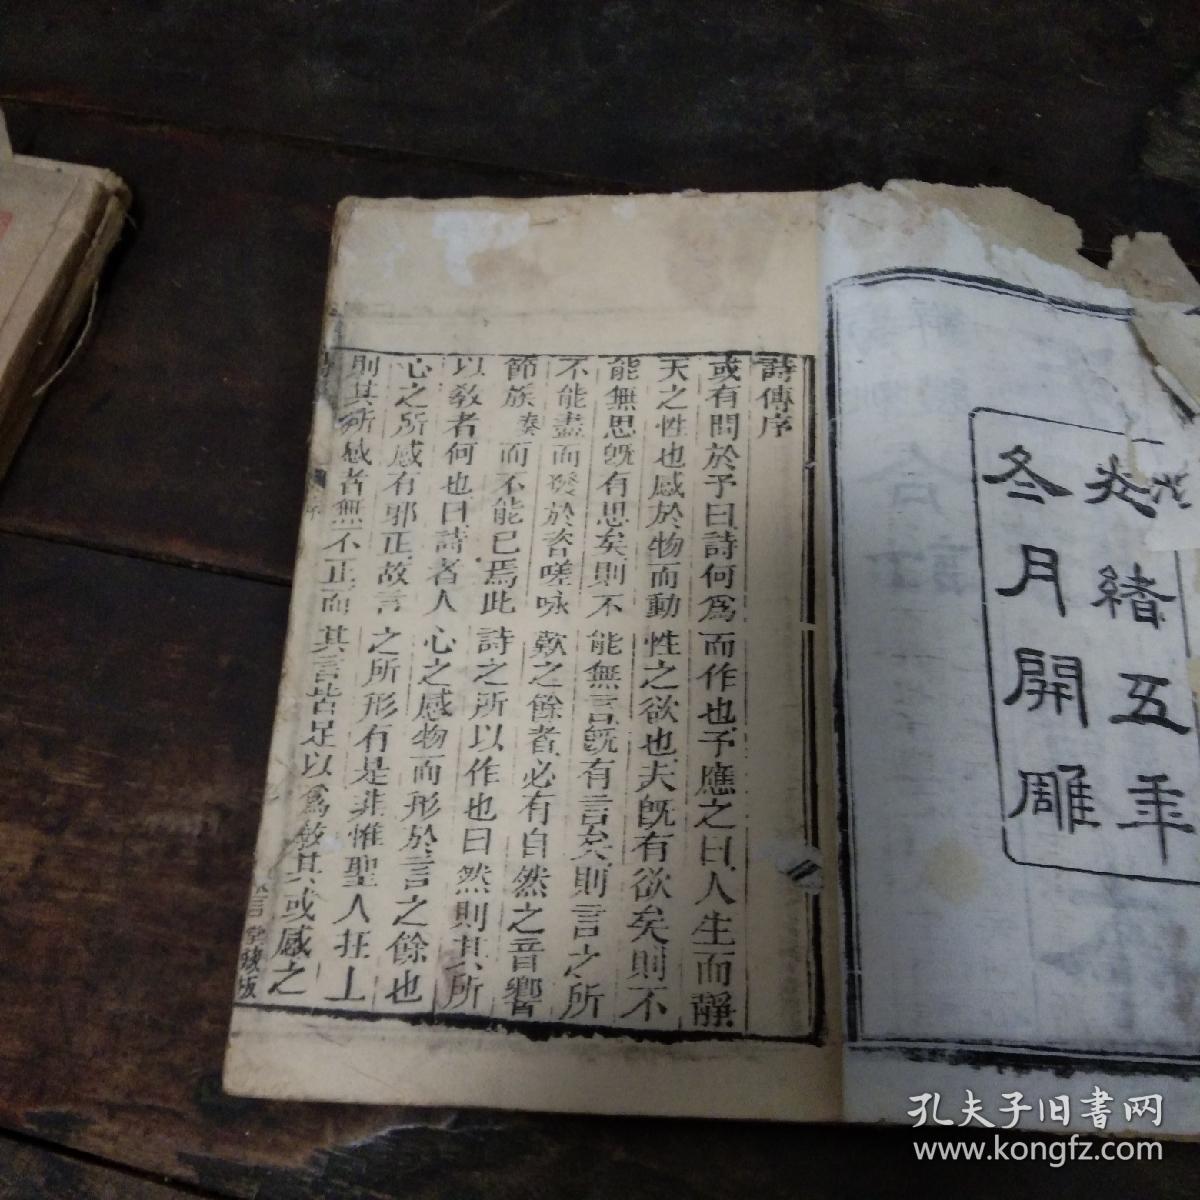 光緒五年
冬月開雕
詩傳序
或有問於予曰詩何為而作也予應之曰人生而靜
天之性也感於物而動性之欲也夫既有欲矣則不
能無思既有思矣則不能無言既有言矣則言之所
不能盡而發於咨嗟咏歎之餘者必有自然之音響
節族湊而不能已焉此詩之所以作也曰然則其所
以教者何也曰詩者人心之感物而形於言之餘也
心之所感有邪正故言之所形有是非惟聖人在上
則其所感者無不正而其言皆足以為教其或感之
孔夫子旧书网
www.kongfz.com